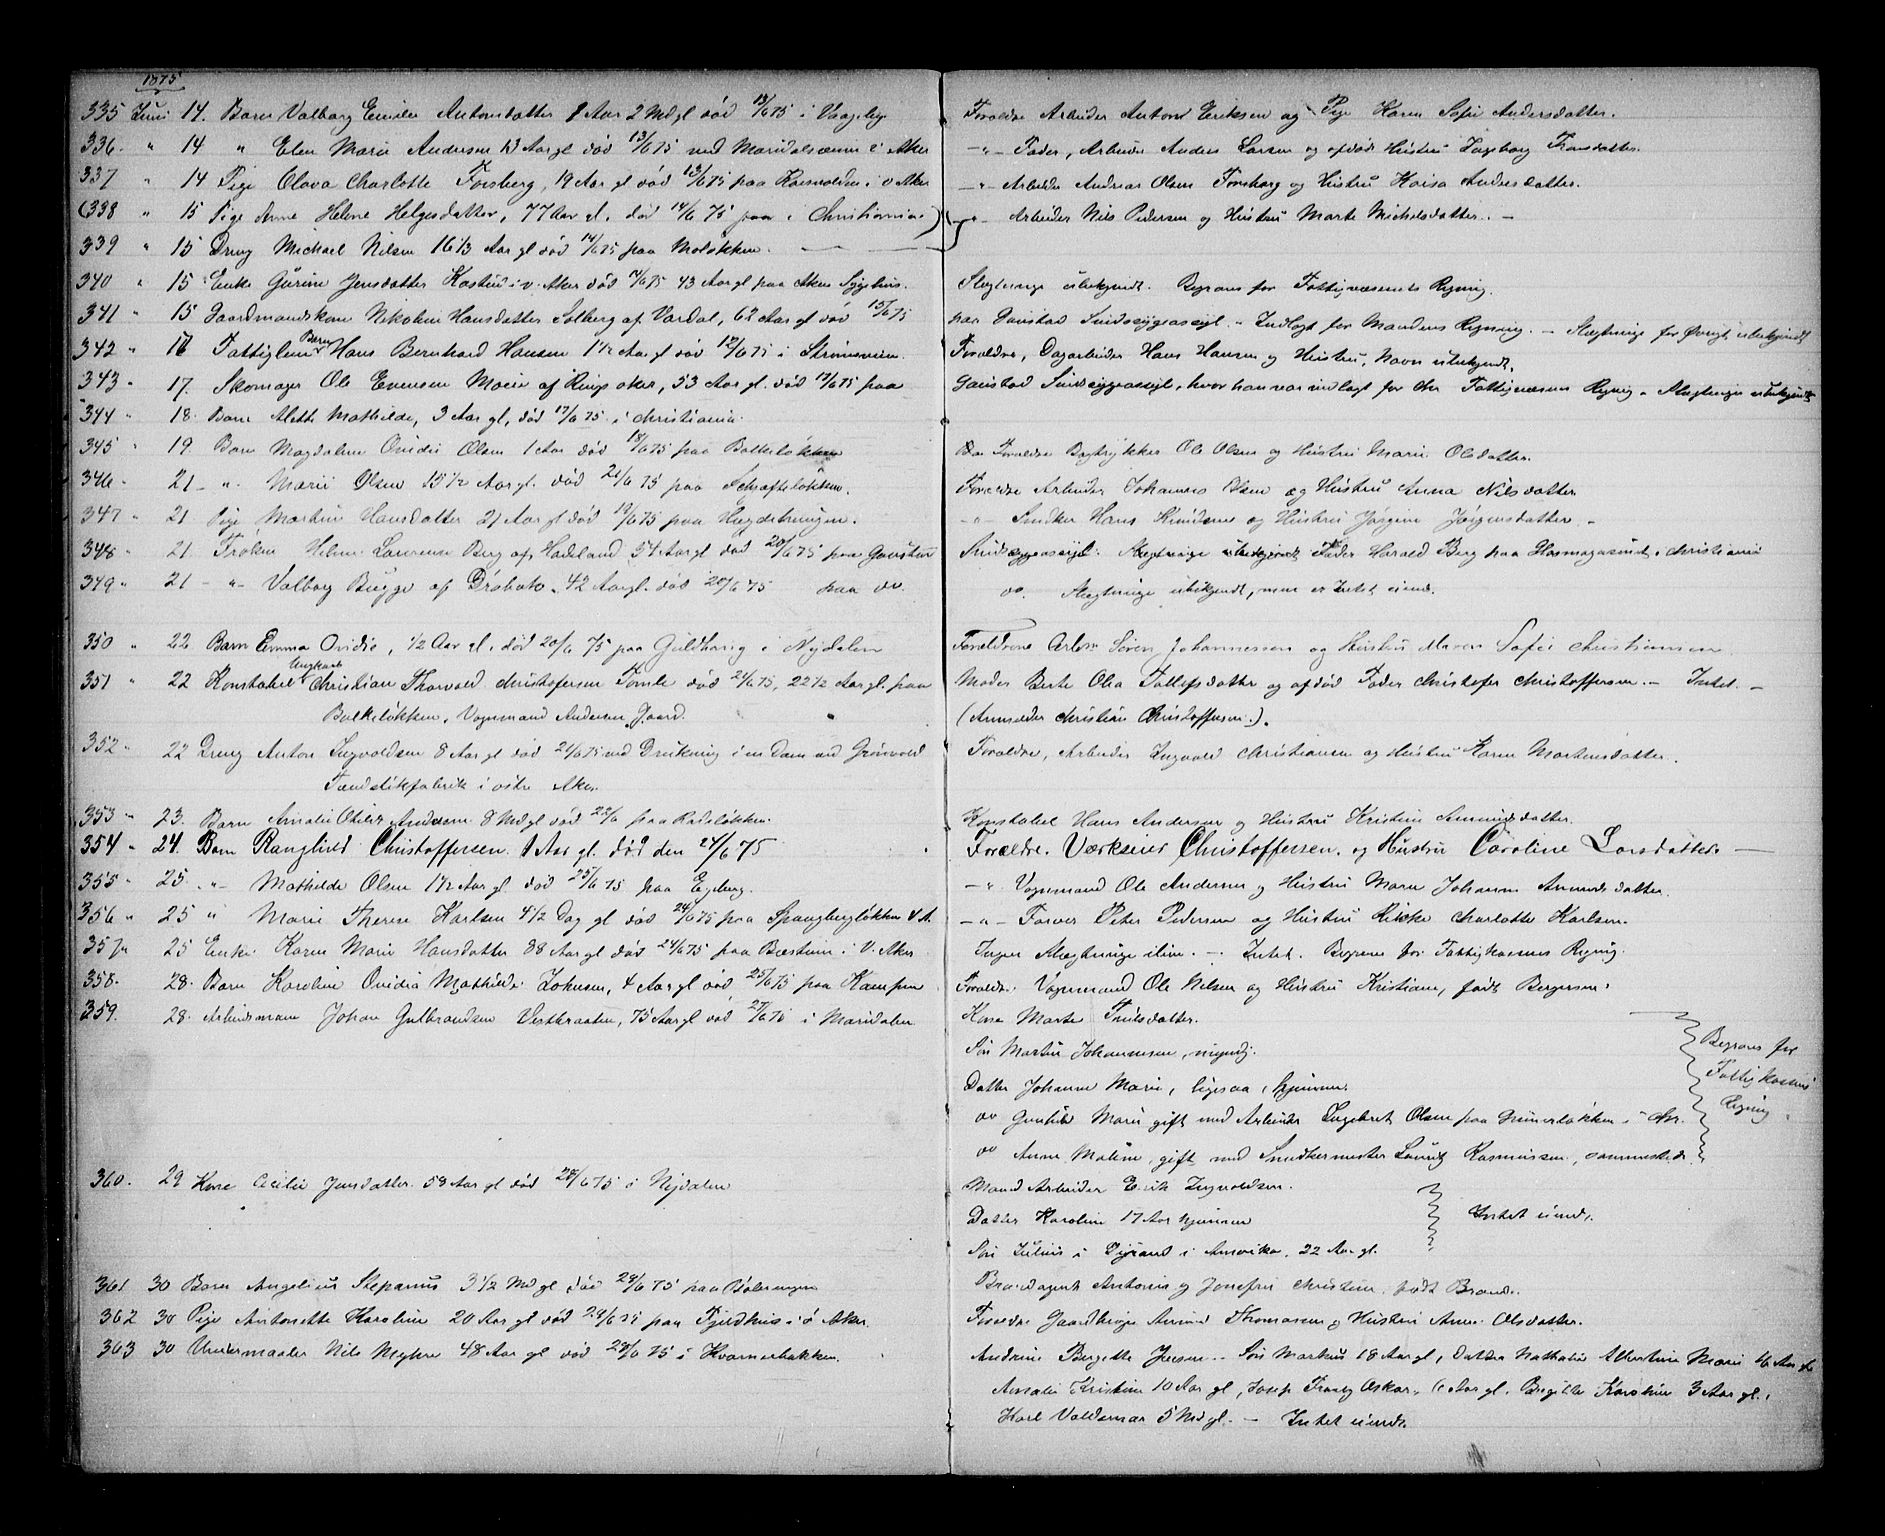 1875
335 Juni 14. Barn Valborg Emilie Antonsdatter 1 Aar 2 Md gl død 13/6 75 i Vaagebye Forældre Arbeider Anton Eriksen og Pige Karen Sofie Andersdatter.
336. " 14 " Elen Marie Andersen 13 Aar gl død 13/6 75 ved Maridalsveien i Aker -"- Fader, Arbeider Anders Larsen og afdøde Hustru Ingeborg Fransdatter.
337 " 14 Pige Olava Charlotte Forsberg, 19 Aar gl død 13/6 75 paa i v Aker -"- Arbeider Andreas Olsen Forsberg og Hustru Kaisa Andersdatter.
(338 " 15 Pige Anne Helene Helgesdatter, 77 Aar gl. død 14/6 75 paa i Christiania)
339 " 15 Dreng Michael Nilsen 16 1/3 Aar gl død 14/6 75 paa Moløkken. -"- Arbeider Nils Pedersen og Hustru Marte Michelsdatter. -
340 " 15 Enke Gurine Jensdatter Kastrud i v. Aker død 14/6 75 43 Aar gl paa Akers Sygehus. Slegtninge ubekjendt. Begraves for Fattigvæsenets Regning.
341 " 15 Gaardmandskone Nikoline Hansdatter Solberg af Vardal, 62 Aar gl død 15/6 75 paa Gaustad Sindssygeasyl. - Indlagt for Mandens Regning. - Slegtninge for Øvrigt ubekjendt
342 " 16 Fattiglem Barn Hans Bernhard Hansen 1 1/2 Aar gl død 12/6 75 i Strømsveien. Forældre, Dagarbeider Hans Hansen og Hustru, Navn ubekjendt.
343 " 17. Skomager Ole Evensen Moeie af Ringsaker, 53 Aar gl. død 17/6 75 paa Gaustad Sindssygeasyl, hvor han var indlagt for Fattigvæsen Regning. Slegtninge ubekjendt
344 " 18. Barn Alette Mathilde, 3 Aar gl, død 17/6 75 i Christiania.
345 " 19 Barn Magdalene Ovidie Olsen 1 Aar død 18/6 75 paa Balkeløkken Forældre Bogtrykker Ole Olsen og Hustru Marie Olsdatter.
346 " 21 - " Marie Olsen 15 1/2 Aar gl. død 21/6 75 paa Schafteløkken. Forældre Arbeider Johannes Olsen og Hustru Anna Nilsdatter
347 " 21 Pige Martine Hansdatter 21 Aar gl død 19/6 75 paa Hagdehaugen. -"- Snedker Hans Knudsen og Hustru Jørgine Jørgensdatter -
348 " 21 Frøken Helene Laurense Berg af Hadeland 54 Aar gl død 20/6 75 paa Gaustad Sindssygeasyl. Slegtninge ubekjendt Fader Harald Berg paa i Christiania
349 " 21 - " - Valborg Bugge af Drøbak, 42 Aar gl. død 20/6 75 paa do. do. Slegtninge ubekjendt, men er Intet eiende.
350 " 22 Barn Emma Ovidie, 1/2 Aar gl. død 20/6 75 paa Guldhaug i Nydalen Forældrene Arb Søren Johannessen og Hustru Maren Sofie Christiansen
351 " 22 Konstabel Ungkarl Christian Thorvald Christofersen Tomle død 21/6 75, 22 1/2 Aar gl. paa Moder Berte Olia Tollefsdatter og afdød Fader Christofer Christoffersen. - Intet. -
Balkeløkken, Vognmand Andersen Gaard. (Anmelder Christian Christoffersen.).
352 " 22 Dreng Anton Ingvoldsen 8 Aar gl død 21/6 75 ved Drukning i en Dam ved Grønvold Forældre, Arbeider Ingvald Christiansen og Hustru Karen Mortensdatter.
Tændstikfabrik i østre Aker.
353 " 23. Barn Amalie Othilie Andersen 8 Md gl død 22/6 paa Rodeløkken. Konstabel Hans Andersen og Hustru Kristine Amundsdatter.
354 " 24. Barn Ranghild Christoffersen 1 Aar gl. død den 24/6 75 Forældre. Værkseier Christoffersen. og Hustru Caroline Larsdatter. -
355 " 25. " - Mathilde Olsen 1 1/2 Aar gl død 25/6 75 paa Egeberg. -"- Vognmand Ole Andersen og Hustru Maren Johanne Amundsdatter.
356 " 25 " Marie Therese Karlsen 4 1/2 Dag gl død 24/6 75 paa Spangbergløkken v A. -"- Farver Peter Pedersen og Hustru Rikke Charlotte Karlsen.
357 " 25 Enke Karen Marie Hansdatter 88 Aar gl død 24/6 75 paa Bæstum i V. Aker Ingen Slegtninge ilive. - Intet. Begraves for Fattigkassens Regning.
358. 28. Barn Karoline Ovidia Mathilde Johnsen, 4 Aar gl død 25/6 75 paa Kampen Forældre. Vognmand Ole Nilsen og Hustru Kristiane, født Bergersen.
359. 28. Arbeidsmand Johan Gulbrandsen Vestbraaten, 75 Aar gl død 27/6 75 i Maridalen Kone Marte Truilsdatter.
Søn Martin Johannesen, myndig. Begraves for
Datter Johanne Marie, ligesaa, hjemme. Fattigkassens
do Gunhild Marie gift med Arbeider Ingebret Olsen paa Grünerløkken i Chr. Regning
do Anne Maline, gift med Snedkermester Lauritz Rasmussen, sammesteds.
360. 29 Kone Cecilie Jensdatter 58 Aar gl død 28/6 75 i Nydalen Mand Arbeider Erik Ingvoldsen.
Datter Karoline 17 Aar hjemme Intet eiende.
Søn Julius i i Amerika. 22 Aar gl.
361 30 Barn Angelius Stepanus 3 1/2 Md gl død 29/6 75 paa Antonius og Josefine Christine født Brand.
362 30 Pige Antonette Karoline 20 Aar gl død 29/6 75 paa i ø Aker. Forældre Gaardbruger Amund Thomasen og Hustru Anne Olsdatter.
363 30 Nils Myhre 48 Aar gl død 28/6 75 i Kvarnerbakken. Andrine Bergitte Jensen. - Søn Markus 18 Aar gl, Døttre Nathalie Albertine Marie 16 Aar gl
Amalie Kristine 10 Aar gl, Josep Frantz Oskar, 6 Aar gl. Birgitte Karoline 3 Aar gl.
Karl Valdemar 5 Md gl. - Intet eiende